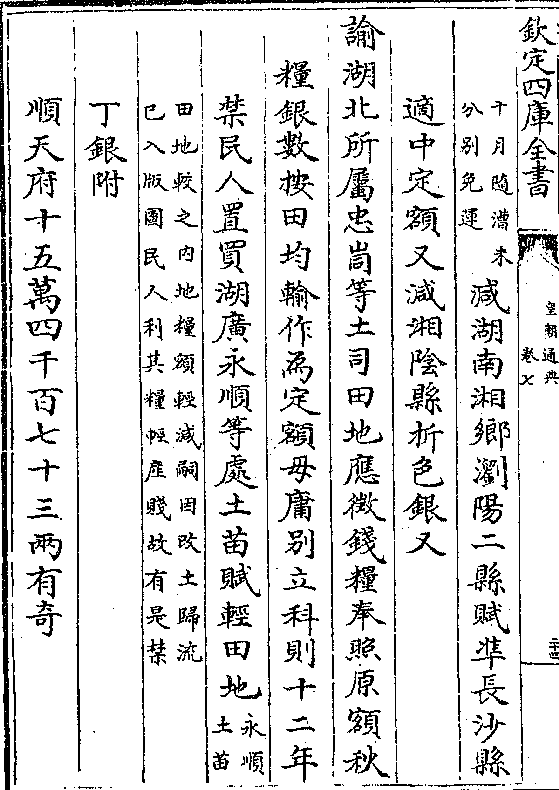 欽定四庫全書
皇朝通典
卷七
二十四
十月隨漕米
分别免運
減湖南湘鄉瀏陽二縣賦準長沙縣
適中定額又減湘陰縣折色銀又
諭湖北所屬忠峝等土司田地應徵錢糧奉照原額秋
糧銀數按田均輸作為定額毋庸别立科則十二年
禁民人置買湖廣永順等處土苗賦輕田地
永順
土苗
田地較之内地糧額輕減嗣因改土歸流
已入版圖民人利其糧輕産賤故有是禁
丁銀附
順天府十五萬四千百七十三兩有奇